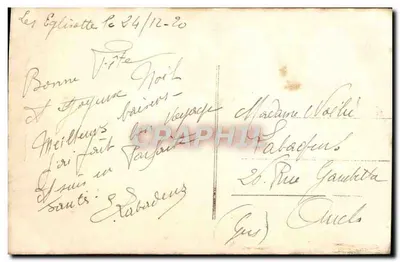 Les Eglisotte le 24/12-20
Bonne Fête
et Joyeux Noël
Meilleurs baisers
J'ai fait bon Voyage
Et suis en parfaite
Santé.
E. Labadens
CPARAMA
Madame
Labadens
20 Rue Gambetta
Auch
(Gers)